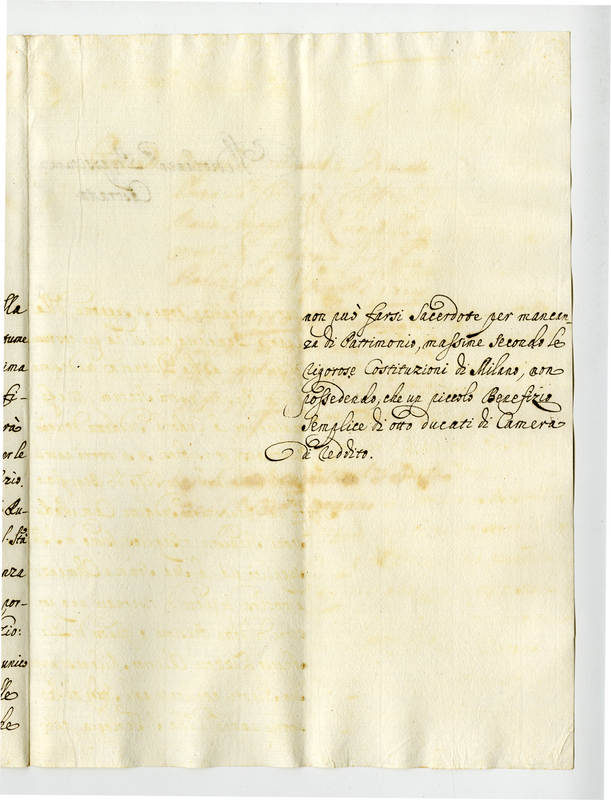 lla
tume
ima
fi-
rà
er le
zio.
Ru-
nza
por-
zio:
unico
lle
he
non può farsi Sacerdote per mancan
za di Patrimonio, massime secondo le
rigorose Costituzioni di Milano, non
possedendo, che un piccolo Benefizio
Semplice di otto ducati di Camera
di reddito.